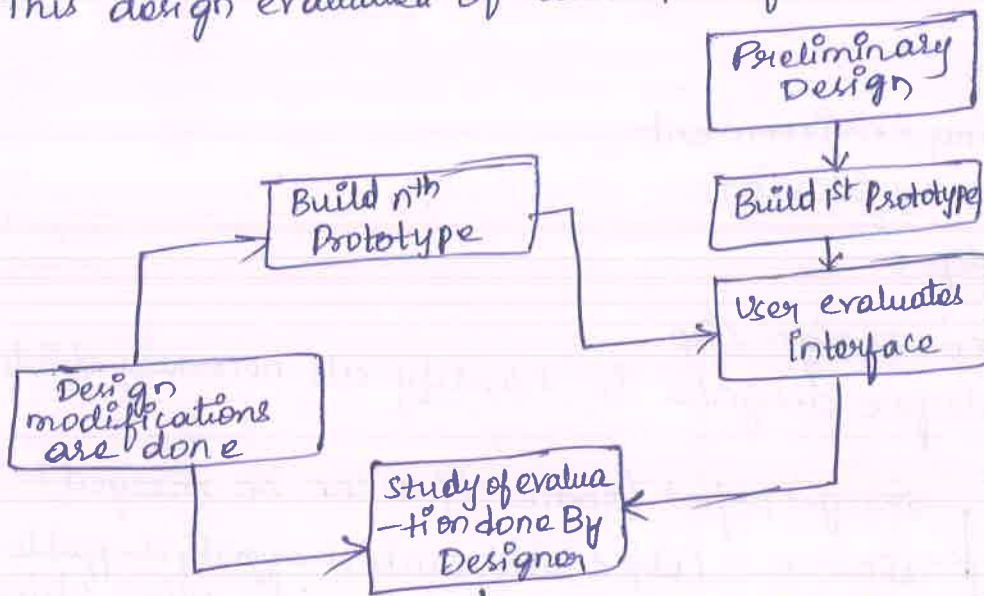 This design evaluated by
Preliminary
Design
Build 1st Prototype
User evaluates
interface
Build nth
Prototype
Design
modifications
are done
study of evalua
-tion done By
Designer